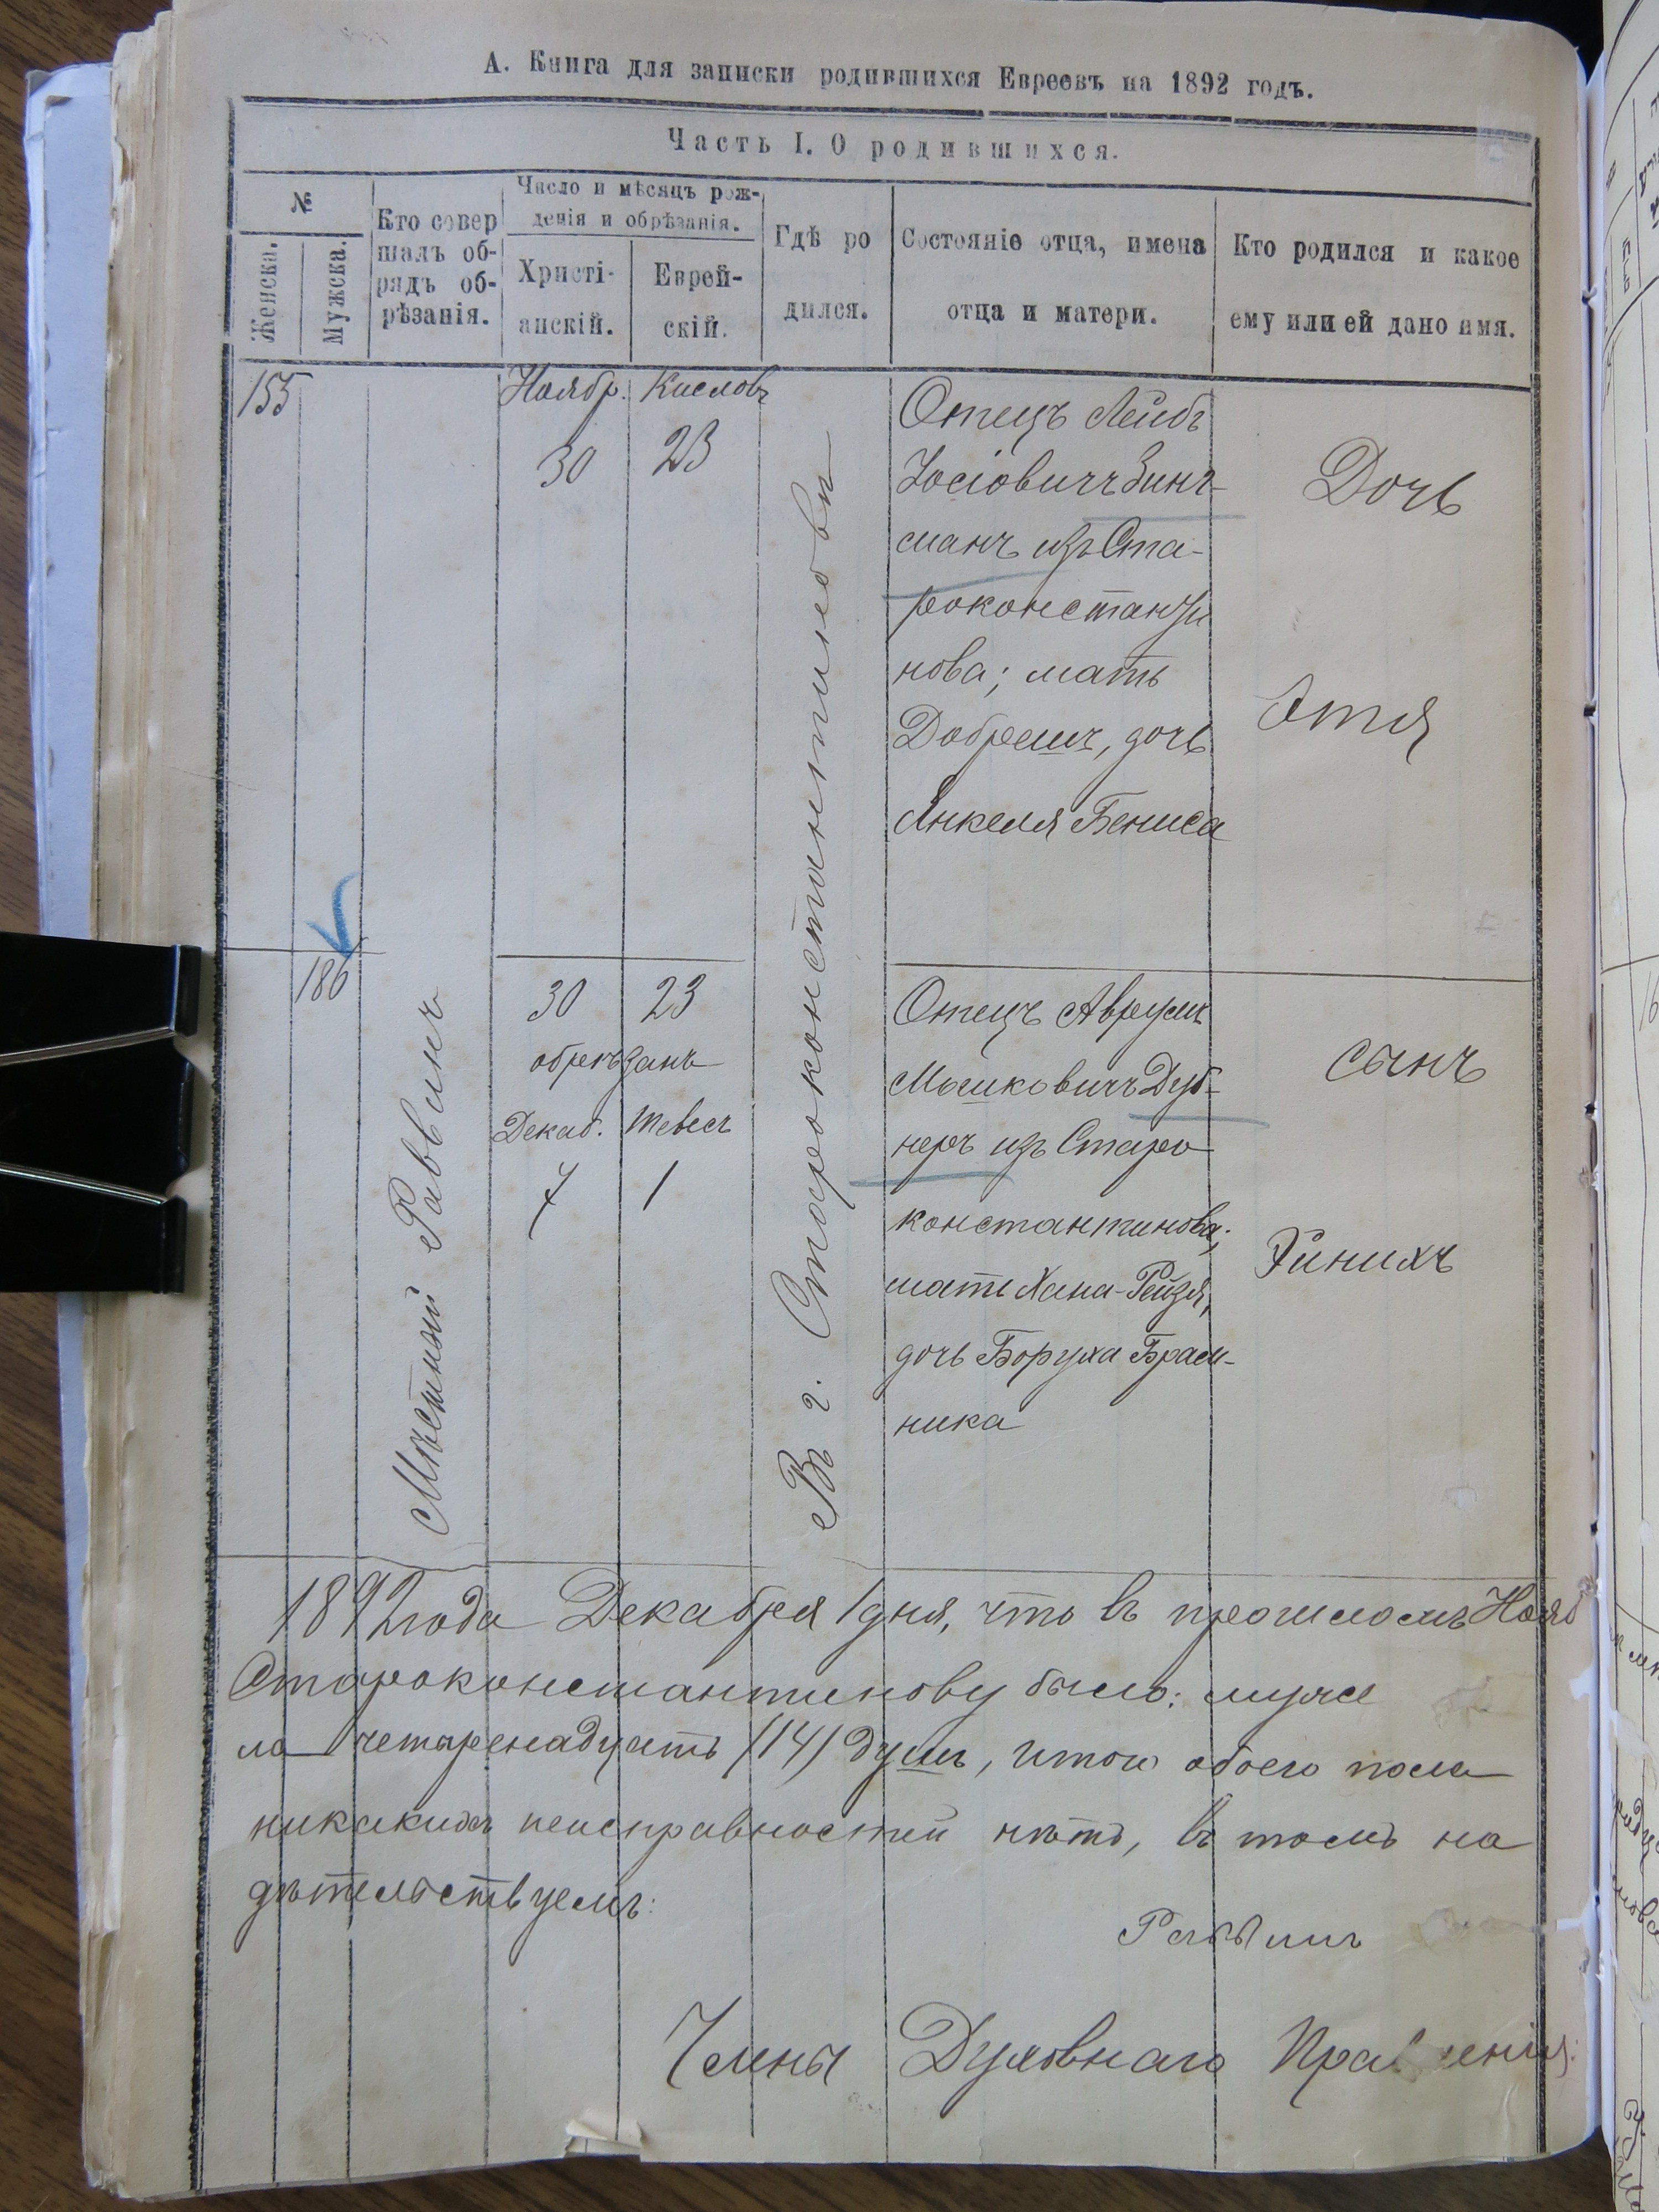 А. Книга для записки родившихся Евреевъ на 1892 годъ.
Часть I. О родившихся.
№
Женска.
Мужска.
Кто совер
шалъ об-
рядъ об-
рѣзанія.
Число и мѣсяцъ рож-
денія и обрѣзанія.
Христі-
анскій.
Еврей-
скій.
Гдѣ ро
дился.
Состояніе отца, имена
отца и матери.
Кто родился и какое
ему или ей дано имя.
155
Ноябр.
30
Кисловъ
23
Отецъ Лейбъ
Іосіовичъ Зинг-
манъ изъ Ста-
роконстанти
нова; мать
Добрешъ, дочь
Янкеля Бениса
Дочь
Этя
186
Мѣстный Раввинъ
30
23
обрѣзанъ
Декаб.
Тевесъ
7
1
Въ г. Староконстантиновѣ
Отецъ Аврумъ
Мошковичъ Дуб-
неръ изъ Старо
константинова;
мать Хана-Рейзя,
дочь Боруха Браш-
ника
Сынъ
Эйнихъ
1892 года Декабря 1 дня, что въ прошломъ Нояб
Староконстантинову было: муже
ла четыренадцать (14) душъ, итого обоего пола
никакихъ неисправностей нѣтъ, въ томъ на
дѣтельствуемъ:
Раввинъ
Члены Духовнаго Правленія: